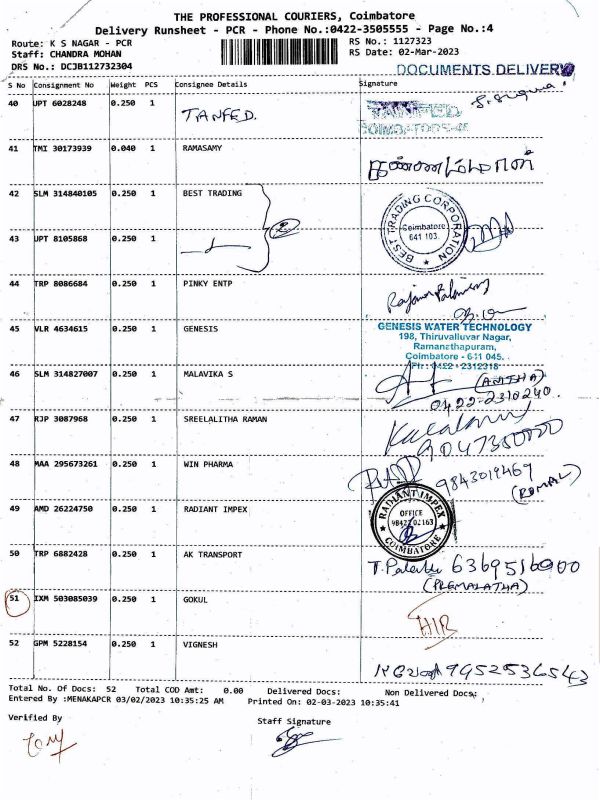 THE PROFESSIONAL COURIERS, Coimbatore
Delivery Runsheet - PCR - Phone No.:0422-3505555 - Page No.:4
Route: K S NAGAR - PCR RS No.: 1127323
Staff: CHANDRA MOHAN RS Date: 02-Mar-2023
DRS No.: DCJB112732304
DOCUMENTS DELIVERY
S No Consignment No Weight PCS Consignee Details Signature
40 UPT 6028248 0.250 1 TANFED.
TANFED
41 TMI 30173939 0.040 1 RAMASAMY
42 SLM 314840105 0.250 1 BEST TRADING 2
BEST TRADING CORPORATION
Coimbatore
641 103.
43 UPT 8105868 0.250 1
44 TRP 8086684 0.250 1 PINKY ENTP
45 VLR 4634615 0.250 1 GENESIS
GENESIS WATER TECHNOLOGY
198, Thiruvalluvar Nagar,
Ramanathapuram,
Coimbatore - 641 045.
Ph : 0422 - 2312318
46 SLM 314827007 0.250 1 MALAVIKA S
(ANITHA)
0422-2310240.
47 RJP 3087968 0.250 1 SREELALITHA RAMAN
48 MAA 295673261 0.250 1 WIN PHARMA
9843019469
49 AMD 26224750 0.250 1 RADIANT IMPEX
RADIANT IMPEX
OFFICE
COIMBATORE
50 TRP 6882428 0.250 1 AK TRANSPORT
(PREMALATHA)
51 IXM 503085039 0.250 1 GOKUL
52 GPM 5228154 0.250 1 VIGNESH
9952536543
Total No. Of Docs: 52 Total COD Amt: 0.00 Delivered Docs: Non Delivered Docs:
Entered By :MENAKAPCR 03/02/2023 10:35:25 AM Printed On: 02-03-2023 10:35:41
Verified By Staff Signature